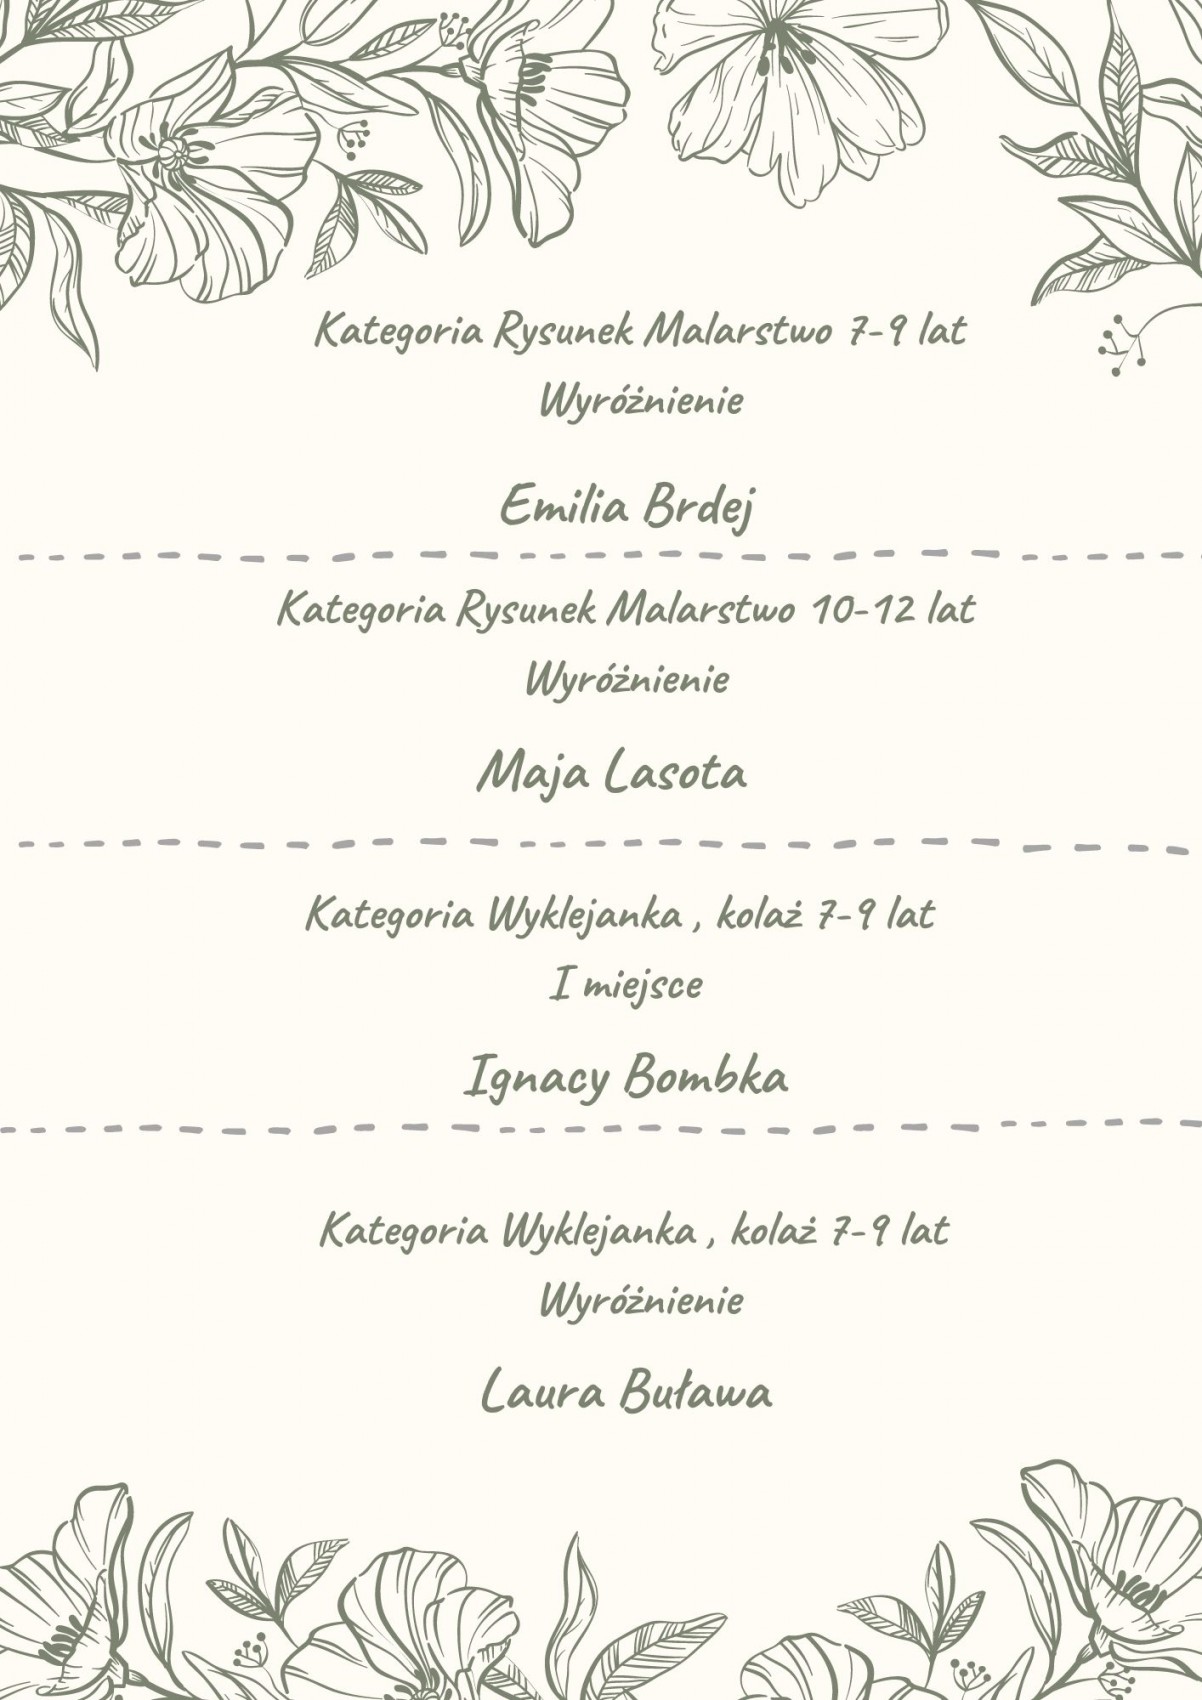 Kategoria Rysunek Malarstwo 7-9 lat
Wyróżnienie
Emilia Brdej
Kategoria Rysunek Malarstwo 10-12 lat
Wyróżnienie
Maja Lasota
Kategoria Wyklejanka , kolaż 7-9 lat
I miejsce
Ignacy Bombka
Kategoria Wyklejanka , kolaż 7-9 lat
Wyróżnienie
Laura Buława